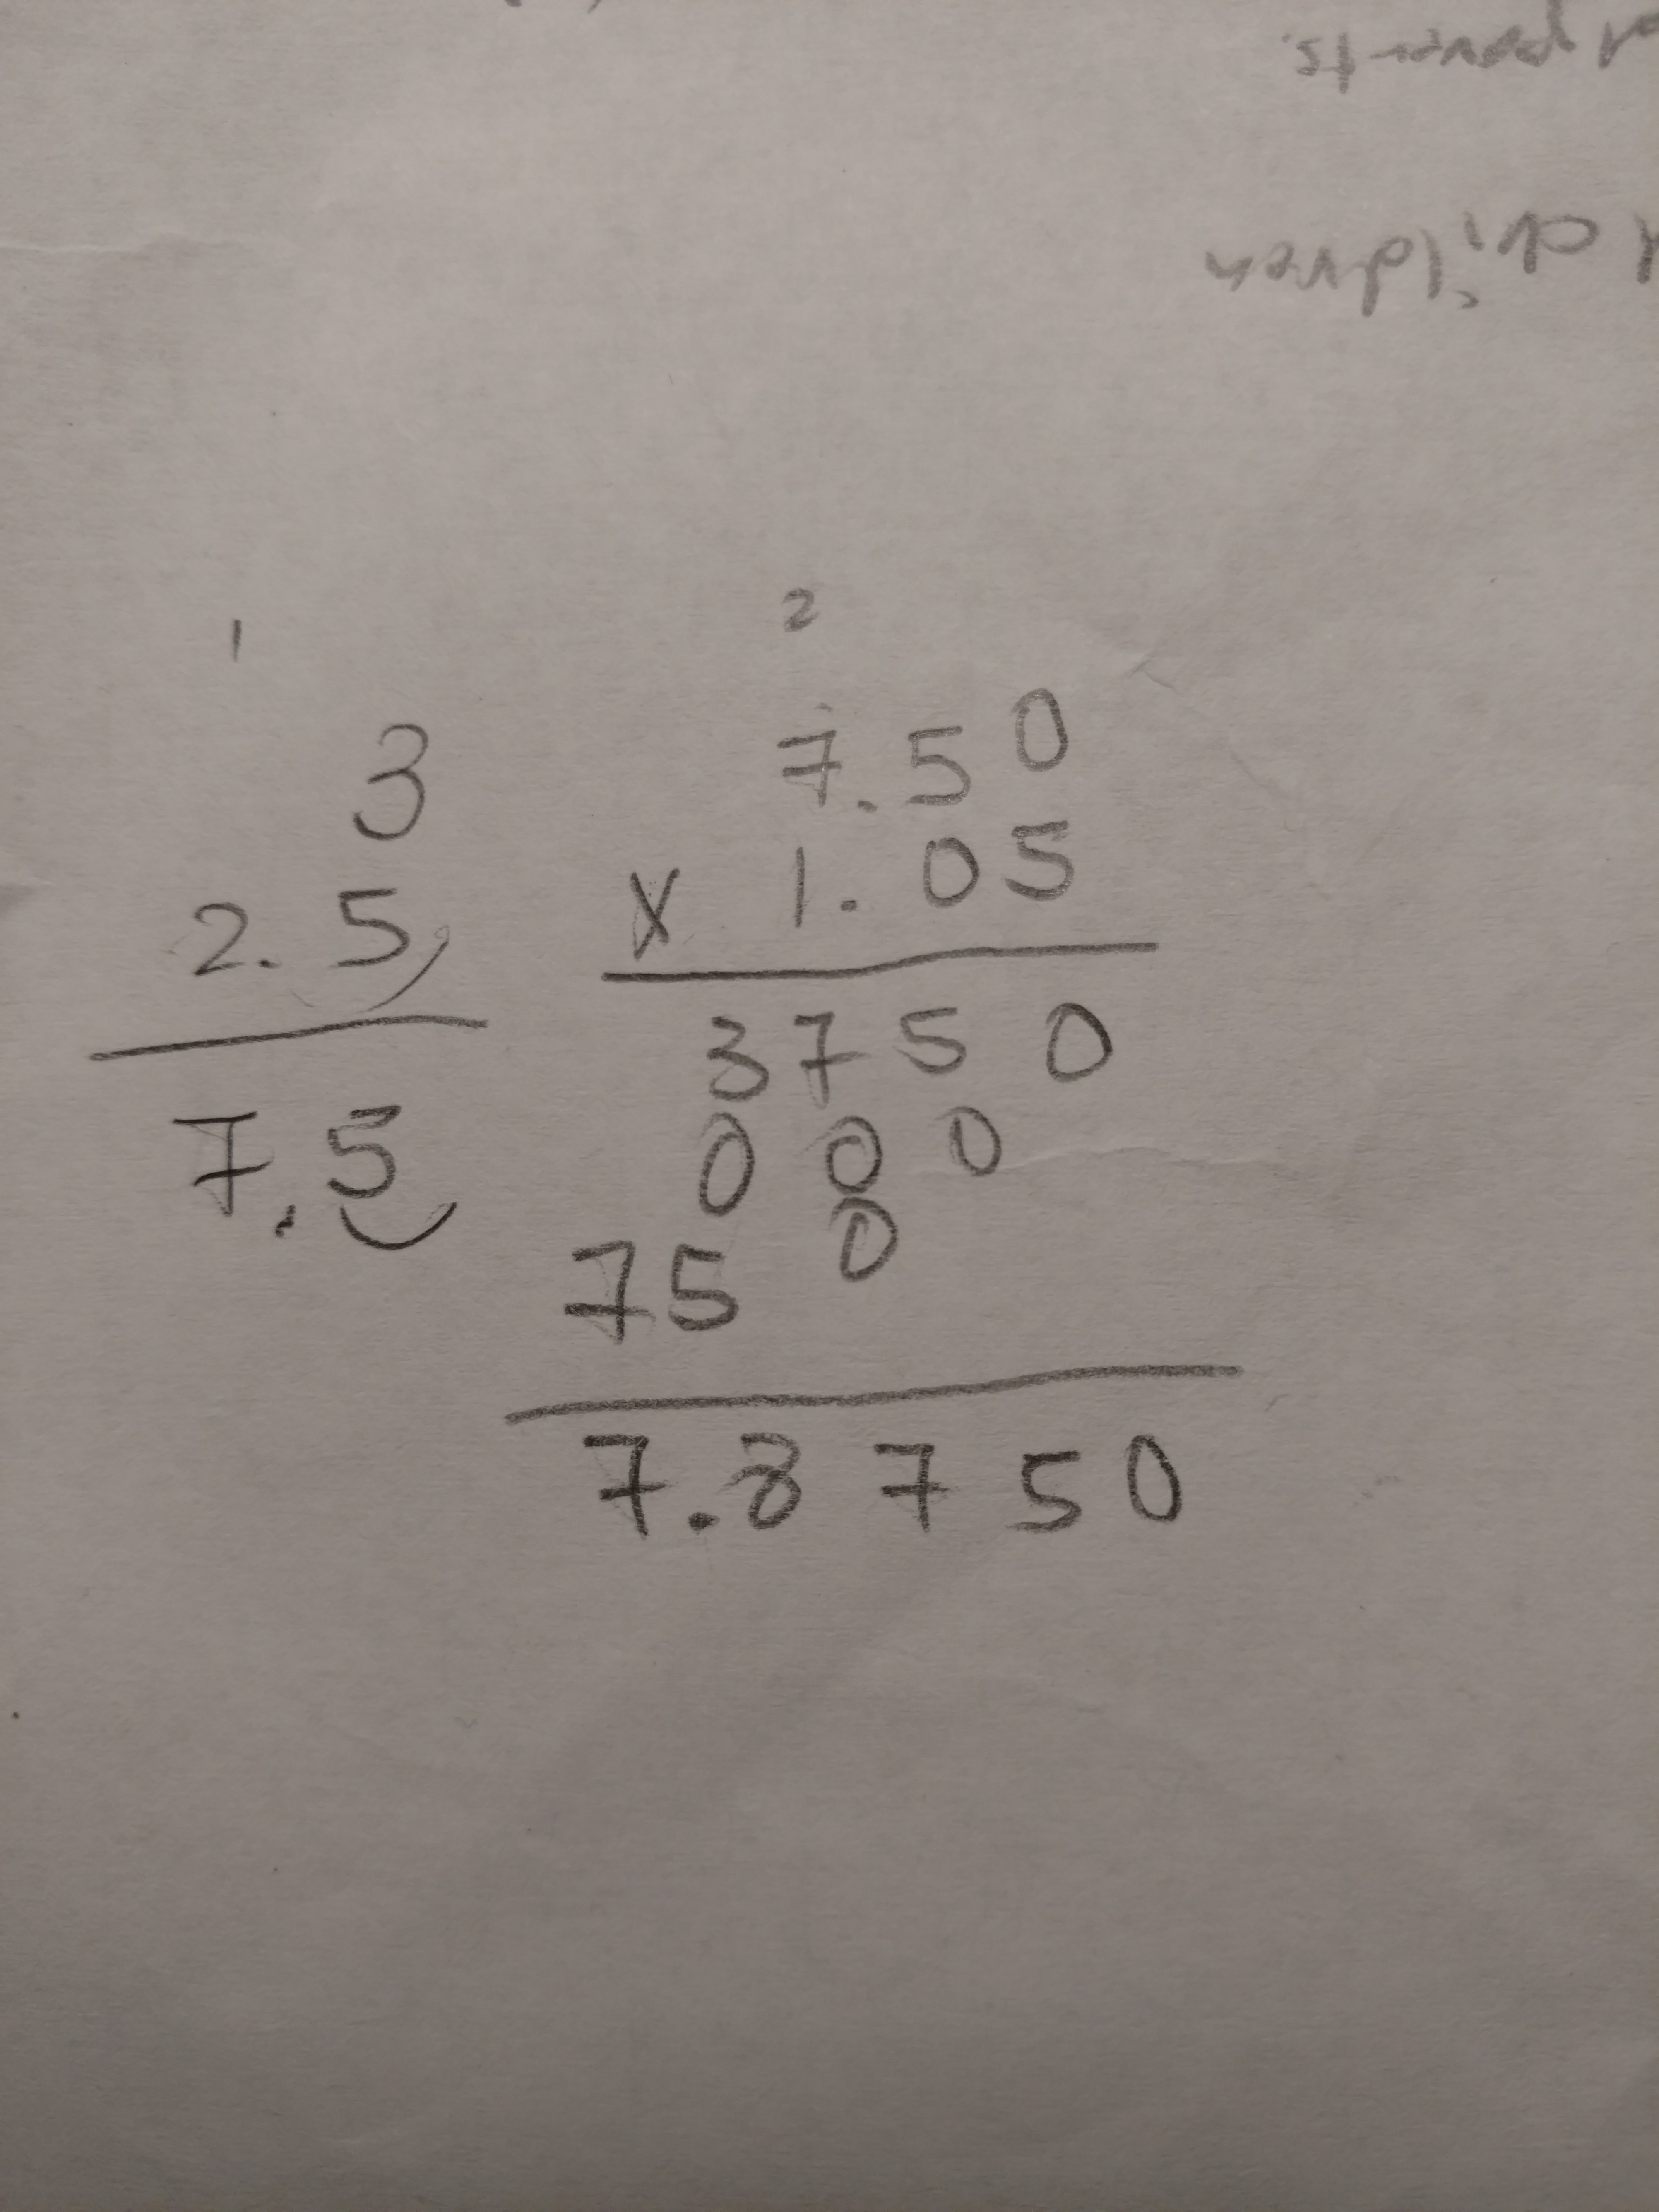 parents
children
1
3
2.5
7.5
2
7.50
x 1.05
3750
000
750
7.8750